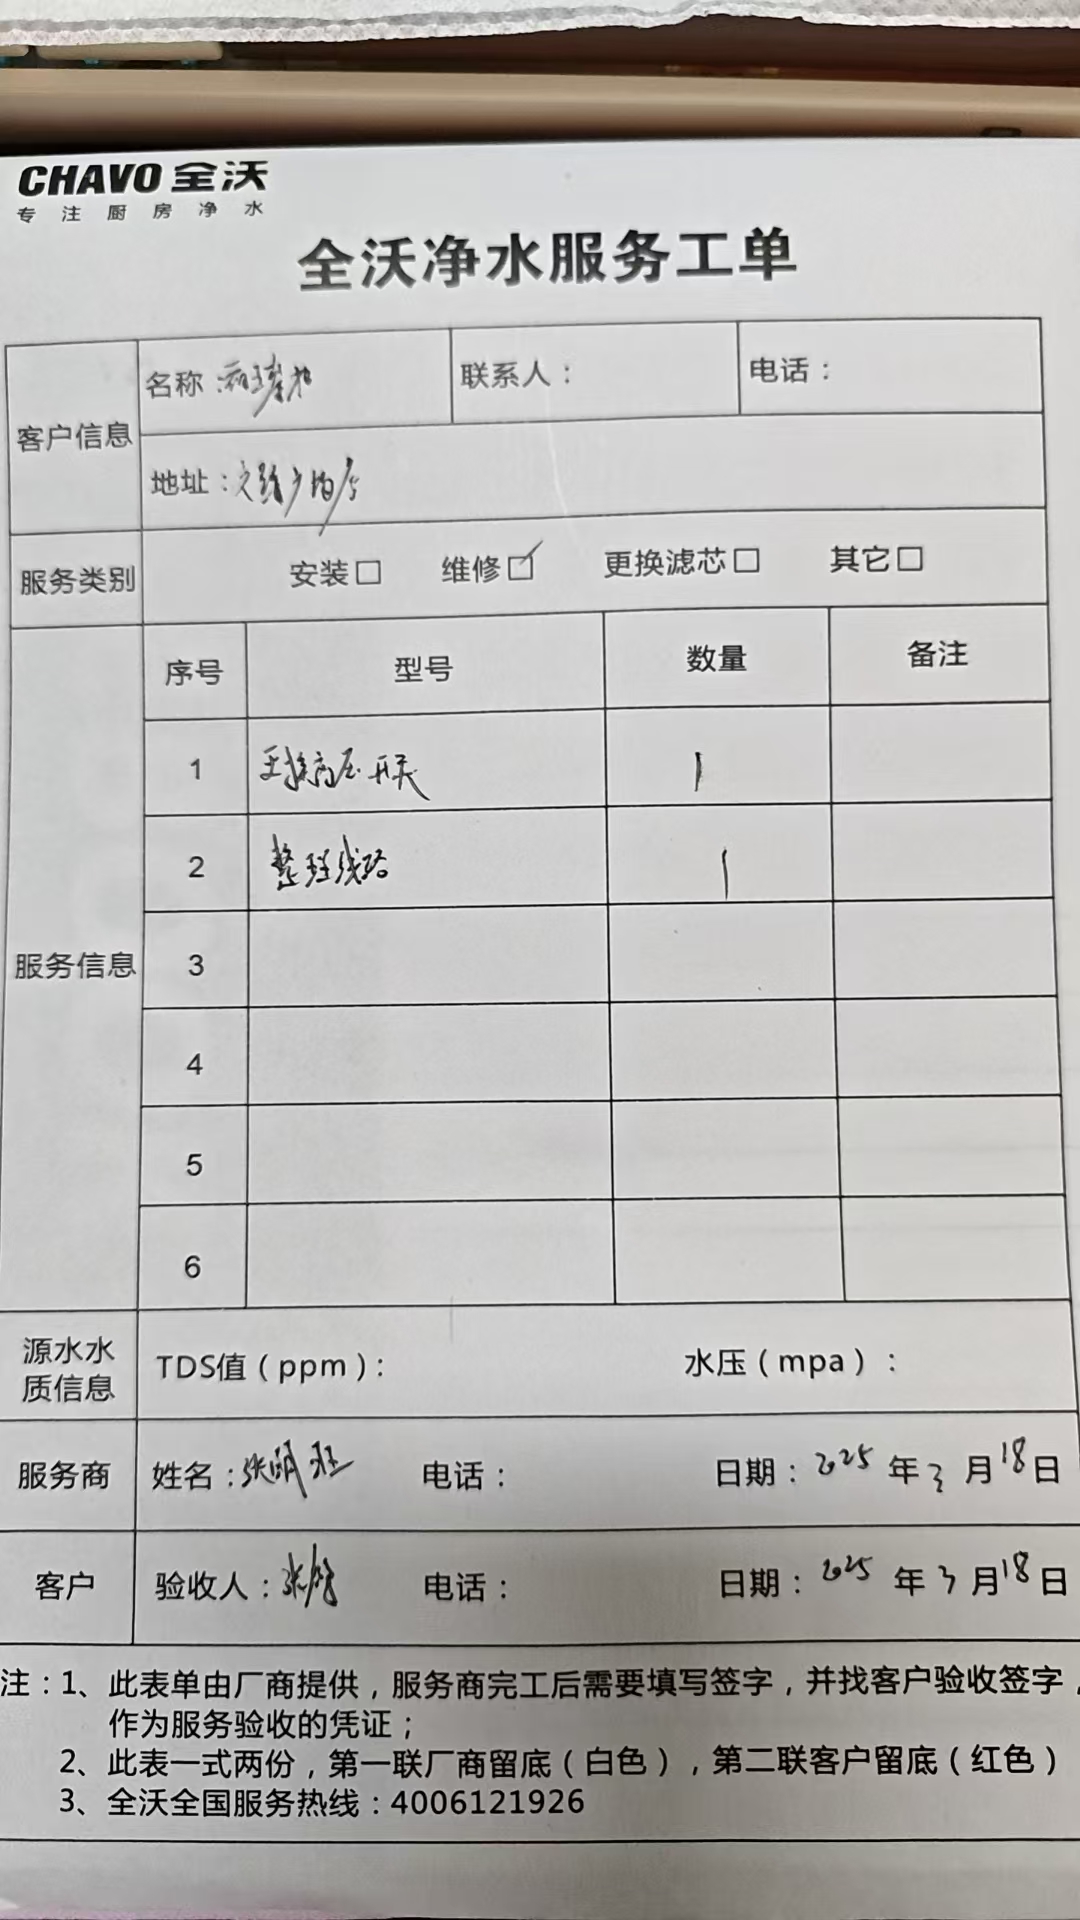 CHAVO 全沃
专注厨房净水
全沃净水服务工单
客户信息
名称：
联系人：
电话：
地址：
服务类别
安装□ 维修☑ 更换滤芯□ 其它□
服务信息
序号 型号 数量 备注
1 更换高压开关 1
2 整理线路 1
3
4
5
6
源水水质信息
TDS值（ppm）： 水压（mpa）：
服务商 姓名：张明 电话： 日期：2025年3月18日
客户 验收人：张 电话： 日期：2025年3月18日
注：1、此表单由厂商提供，服务商完工后需要填写签字，并找客户验收签字，
作为服务验收的凭证；
2、此表一式两份，第一联厂商留底（白色），第二联客户留底（红色）
3、全沃全国服务热线：4006121926